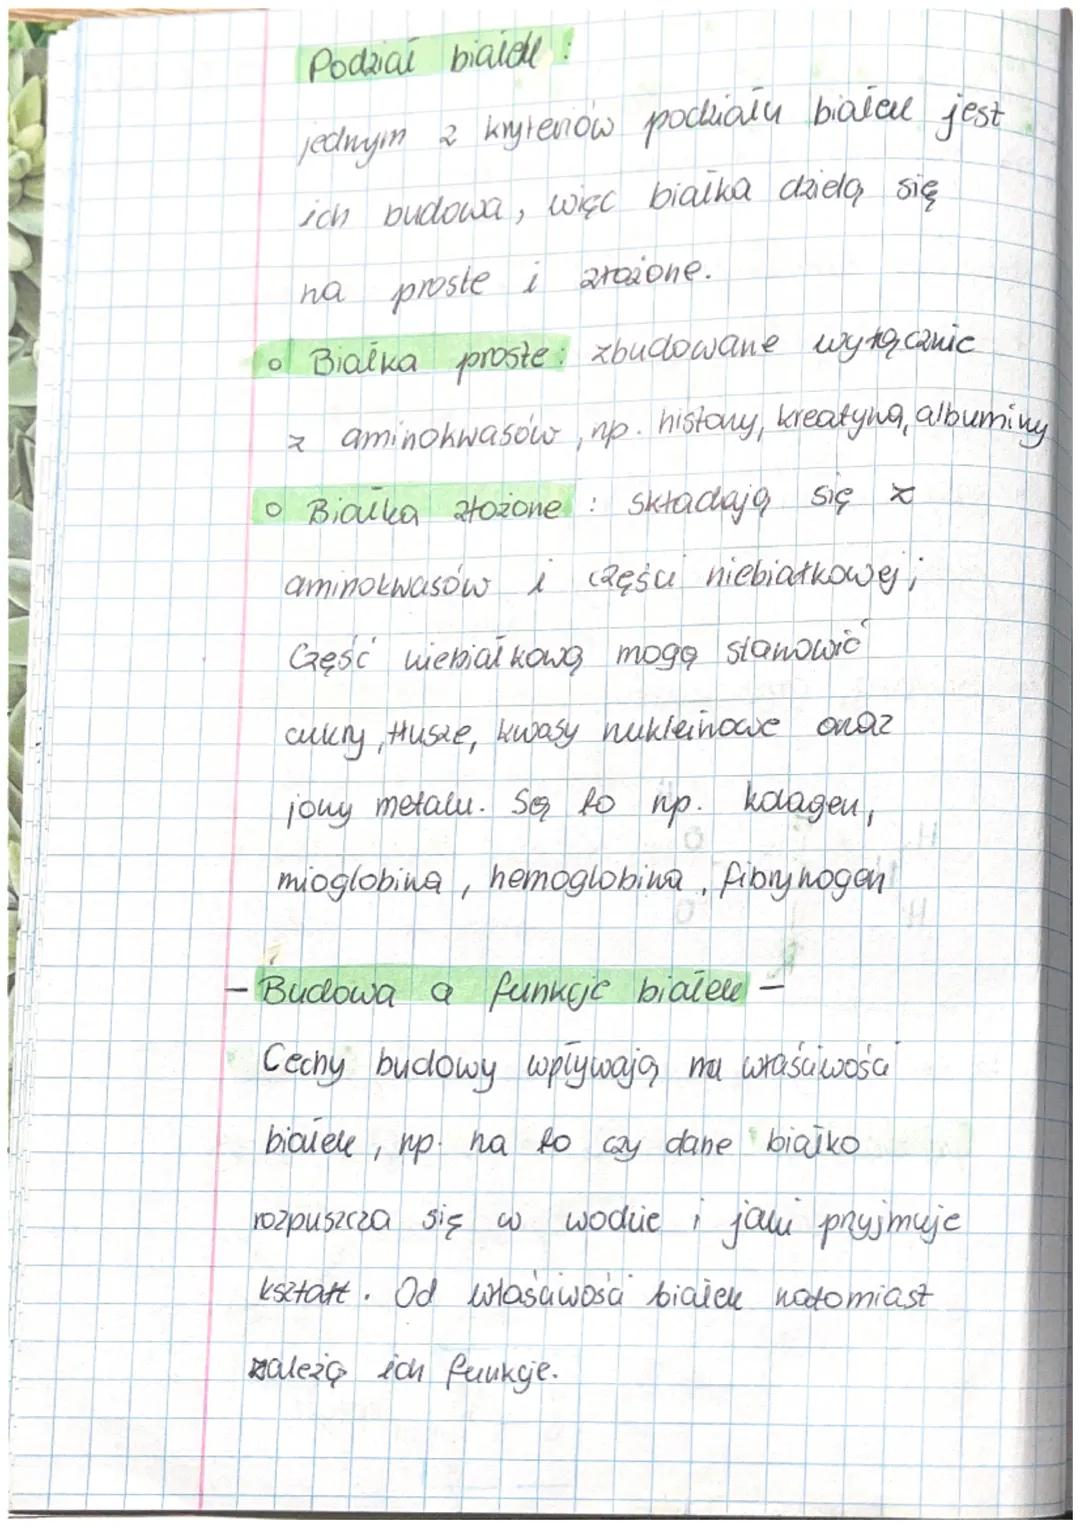 Podział białek :
jednym z kryteriów podziału białek jest
ich budowa, więc białka dzielą się
na proste i złożone.
o Białka proste: zbudowane wyłącznie
z aminokwasów, np. histony, kreatyna, albuminy
o Białka złożone : składają się z
aminokwasów i części niebiałkowej;
Część niebiałkową mogą stanowić
cukry, tłuszcze, kwasy nukleinowe oraz
jony metalu. Są to np. kolagen,
mioglobina, hemoglobina, fibrynogen
- Budowa a funkcje białek -
Cechy budowy wpływają na właściwości
białek, np. na to czy dane białko
rozpuszcza się w wodzie i jaki przyjmuje
kształt. Od właściwości białek natomiast
zależą ich funkcje.